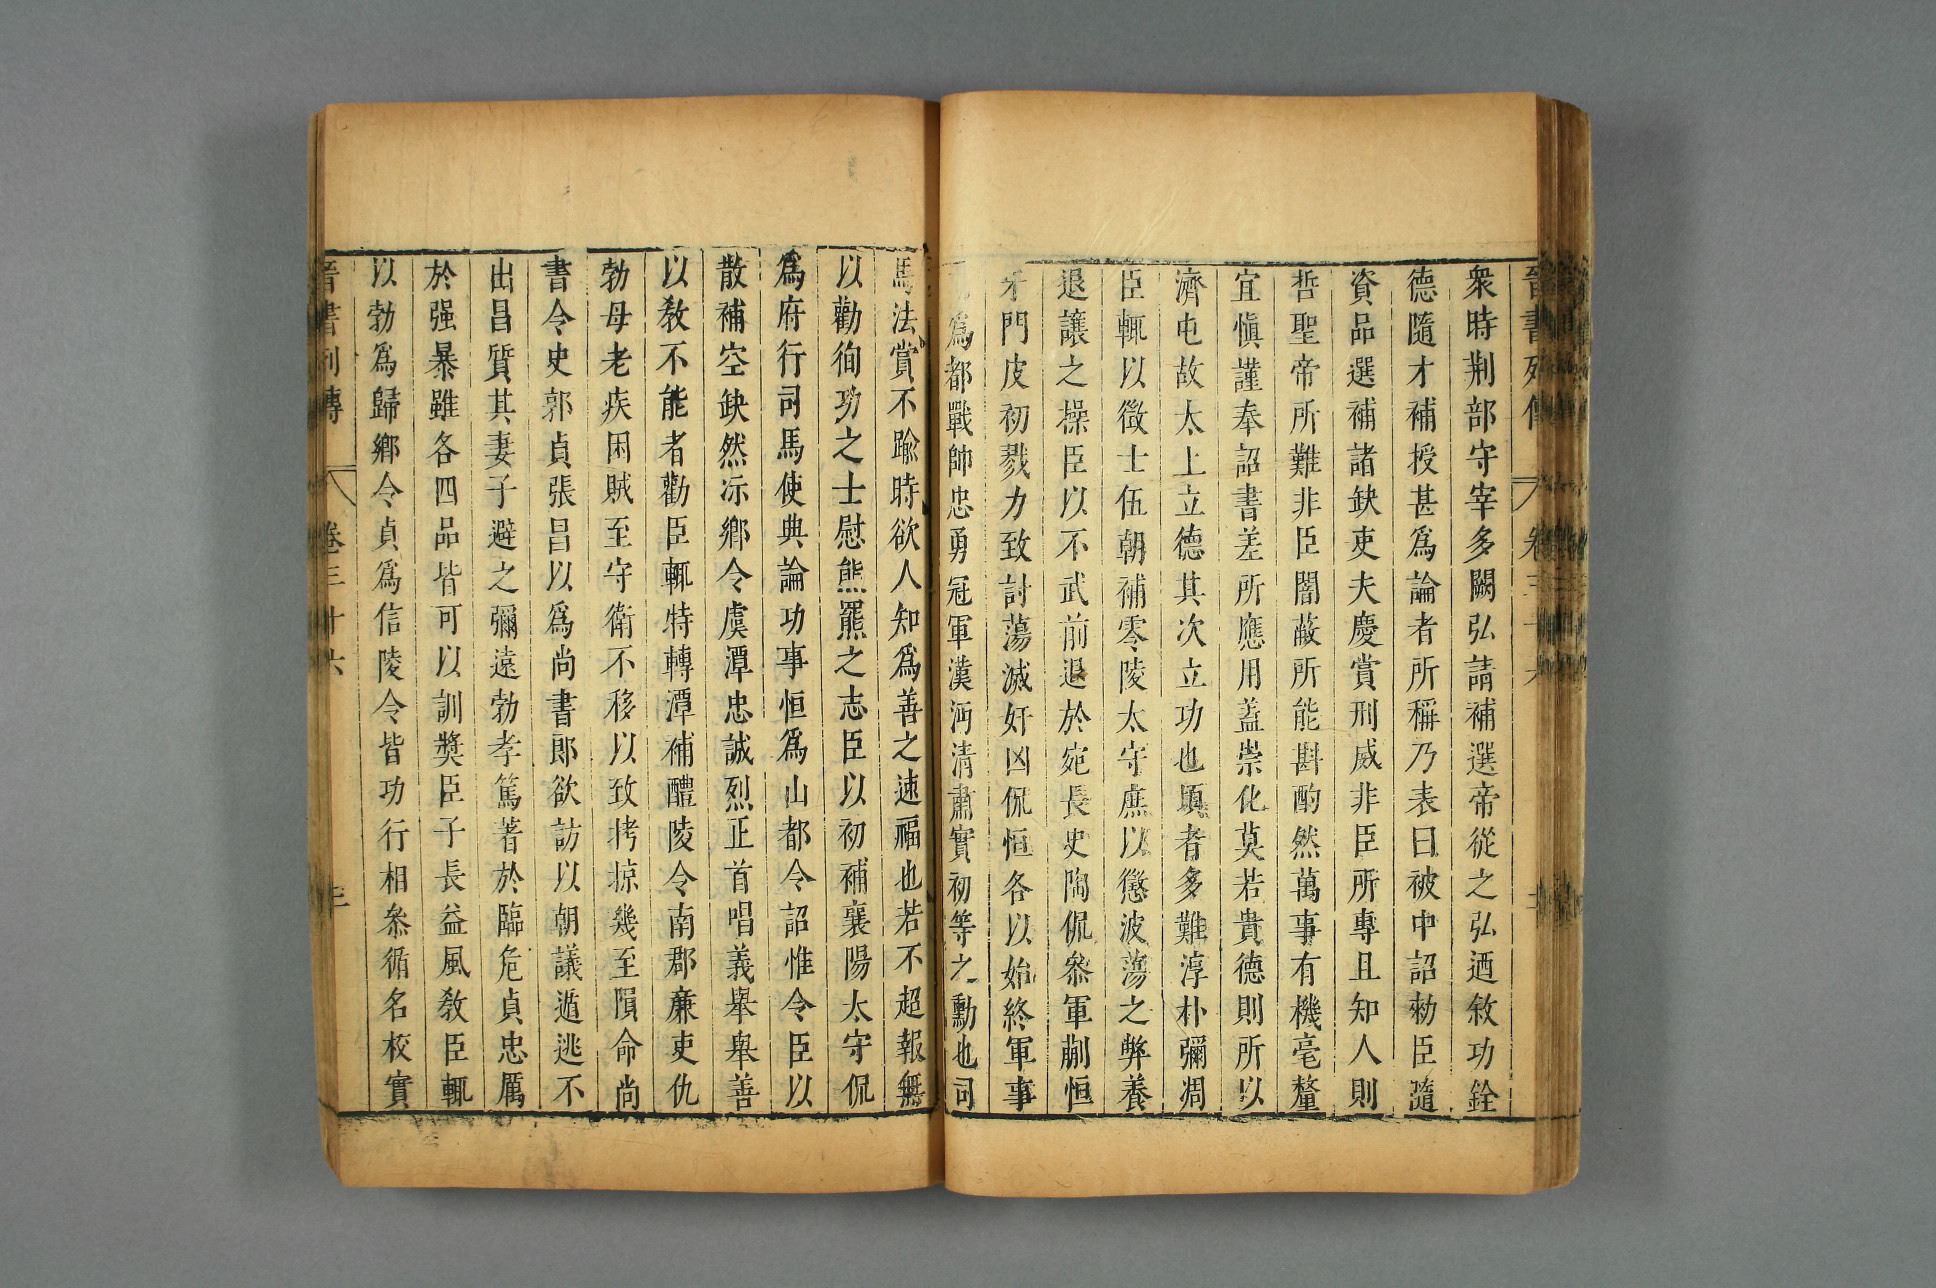 晉書列傳 卷三十六
衆時荆部守宰多闕弘請補選帝從之弘迺敘功銓
德隨才補授甚爲論者所稱乃表曰被中詔勑臣隨
資品選補諸缺吏夫慶賞刑威非臣所專且知人則
哲聖帝所難非臣闇蔽所能斟酌然萬事有機毫釐
宜愼謹奉詔書差所應用蓋崇化莫若貴德則所以
濟屯故太上立德其次立功也頃者多難淳朴彌凋
臣輒以徵士伍朝補零陵太守庶以懲波蕩之弊養
退讓之操臣以不武前退於宛長史陶侃叅軍蒯恒
牙門皮初戮力致討蕩滅奸凶侃恒各以始終軍事
爲都戰帥忠勇冠軍漢沔清肅實初等之勳也司
馬法賞不踰時欲人知爲善之速福也若不超報無
以勸徇功之士慰熊羆之志臣以初補襄陽太守侃
爲府行司馬使典論功事恒爲山都令詔惟令臣以
散補空缺然沶鄉令虞潭忠誠烈正首唱義舉舉善
以敎不能者勸臣輒特轉潭補醴陵令南郡廉吏仇
勃母老疾困賊至守衛不移以致拷掠幾至隕命尚
書令史郭貞張昌以爲尚書郞欲訪以朝議遁逃不
出昌質其妻子避之彌遠勃孝篤著於臨危貞忠厲
於强暴雖各四品皆可以訓奬臣子長益風敎臣輒
以勃爲歸鄉令貞爲信陵令皆功行相叅循名校實
晉書列傳 卷三十六